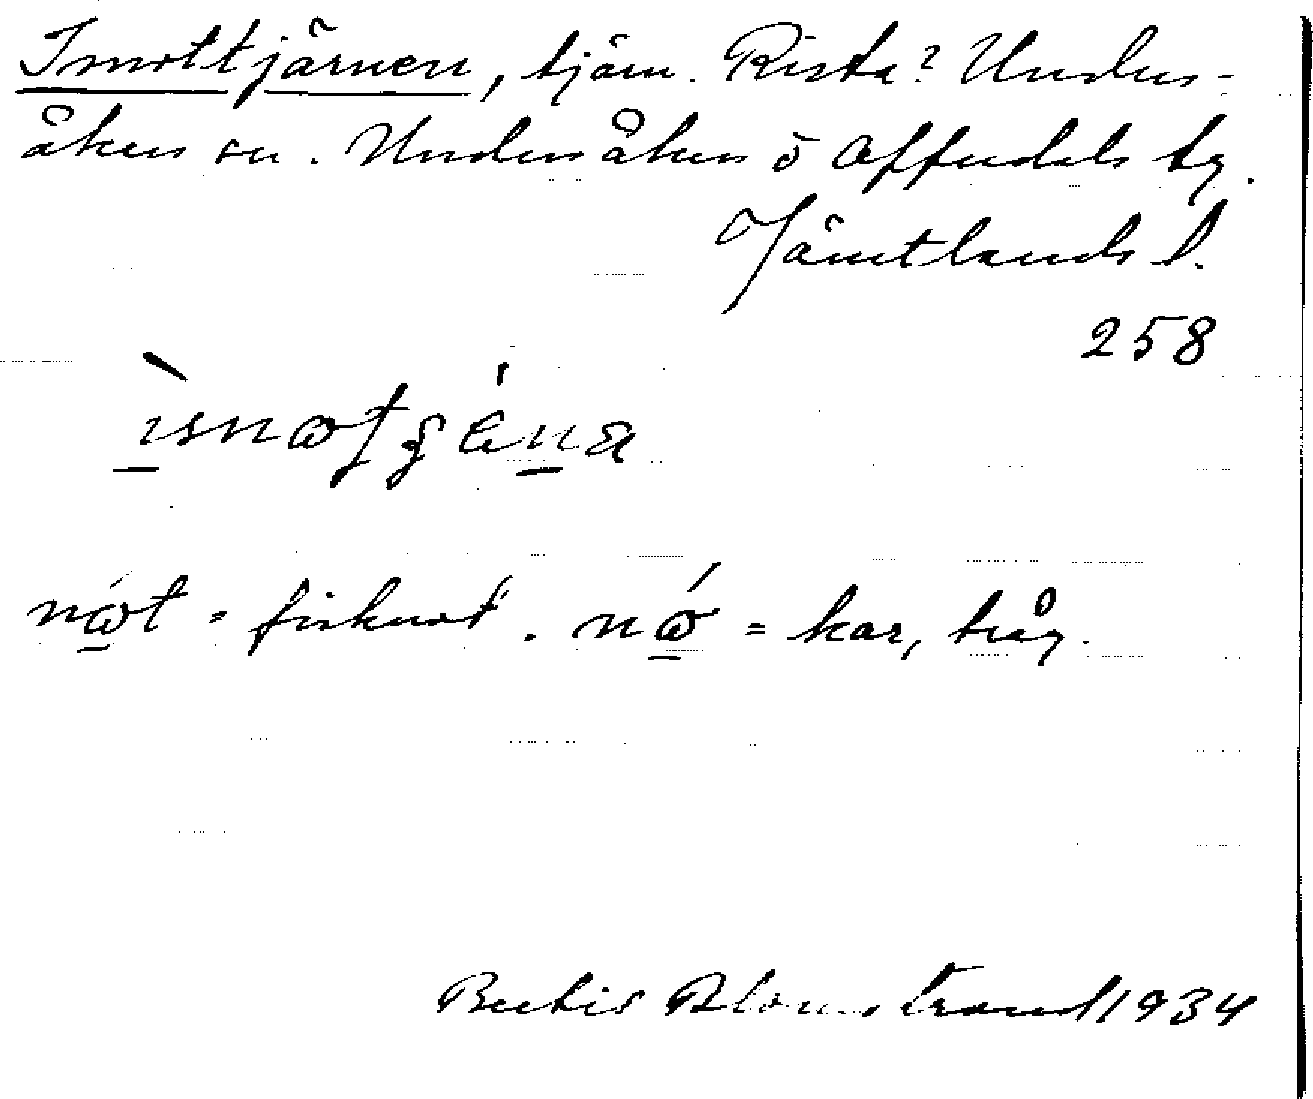 Isnottjärnen, tjärn. Rista? Unders-
åkers sn. Undersåkers o Offerdals tg.
Jämtlands l.
258
nɷ́t = fisknot. nɷ́ = kar, tråg.
Bertil Blomstrand 1934